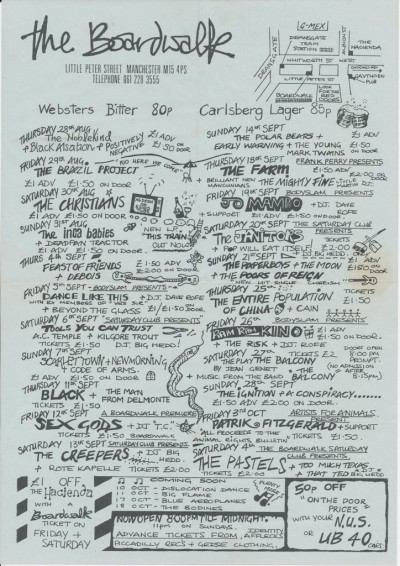 the Boardwalk
LITTLE PETER STREET MANCHESTER M15 4PS
TELEPHONE 061 228 3555
G-MEX
DEANSGATE
TRAIN
STATION
ALBION ST
THE
HACIENDA
DEANSGATE
WHITWORTH ST WEST
LITTLE PETER ST
GAYTHORN
PUB
BOARDWALK
LOOK FOR THE
RED DOORS
Websters Bitter 80p
THURSDAY 28TH AUG
The NobleKind
+ Black Assation + POSITIVELY NEGATIVE
£1 ADV
£1.50 ON DOOR
FRIDAY 29TH AUG.
THE BRAZIL PROJECT
£1 ADV £1.50 ON DOOR
SATURDAY 30TH AUG
THE CHRISTIANS
£1 ADV £1.50 ON DOOR
SUNDAY 31ST AUG
The inca babies
+ DEADPAN TRACTOR
£1 ADV £1.50 ON DOOR
NEW L.P.
THIS TRAIN
OUT NOW!
THURS 4TH SEPT
FEAST OF FRIENDS
+ DEBRIS
£1.50 ADV
£2.00 ON DOOR
FRIDAY 5TH SEPT - BODYSLAM PRESENTS
DANCE LIKE THIS + D.J. DAVE ROFE
+ BEYOND THE GLASS £1/£1.50 ON DOOR
SATURDAY 6TH SEPT "SATURDAY CLUB PRESENTS"
TOOLS YOU CAN TRUST
A.C. TEMPLE + KILGORE TROUT
TICKETS £1.50 D.J. BIG HEDD!
SUNDAY 7TH SEPT
SCARLET TOWN + NEW MORNING
+ CODE OF ARMS.
£1 ADV £1.50 ON DOOR
THURSDAY 11TH SEPT
BLACK + THE MAN FROM DELMONTE
TICKETS £1.50
FRIDAY 12TH SEPT A BOARDWALK PREMIERE
SEX GODS + D.J. "T.C."
TICKETS £1.50 BOARDWALK
SATURDAY 13TH SEPT SATURDAY CLUB PRESENTS
THE CREEPERS + D.J. BIG HEDD
+ ROTE KAPELLE TICKETS £2.00
Carlsberg Lager 85p
SUNDAY 14TH SEPT
THE POLAR BEARS +
EARLY WARNING + THE YOUNG
MARK TWAINS
£1 ADV
£1.50 ON DOOR
THURSDAY 18TH SEPT FRANK PERRY PRESENTS
THE FARM
+ THE MIGHTY FINE
£1.50 ADV
£2.00 ON DOOR
FRIDAY 19TH SEPT BODYSLAM PRESENTS
JO MAMBO + D.J. DAVE ROFE
+ SUPPORT £1.50 ADV £1.50 ON DOOR
SATURDAY 20TH SEPT THE SATURDAY CLUB PRESENTS
The JANITORS
+ POP WILL EAT ITSELF
TICKETS
£2.00
SUNDAY 21ST SEPT
THE PAPERBOYS + THE MOON
+ THE POORS OF REIGN
THURSDAY 25TH SEPT
THE ENTIRE POPULATION
OF CHINA + CAIN
TICKETS
£1.50
FRIDAY 26TH BODYSLAM PRESENTS
RAM RAM KINO
+ THE RISK + D.J. ROFE
£1 ADV
£1.50 ON DOOR
SATURDAY 27TH TICKETS £2
THE PLAY THE BALCONY
BY JEAN GENET
+ MUSIC FROM THE BAND THE BALCONY
DOOR OPEN
8.00 PM
PROMPT.
(NO ADMISSION
AFTER
8.15pm.)
SUNDAY 28TH SEPT
THE IGNITION + A CONSPIRACY........
£1.50 ADV £2.00 ON DOOR
FRIDAY 3RD OCT ARTISTS FOR ANIMALS PRESENT
PATRIK FITZGERALD + SUPPORT
ALL PROCEEDS TO THE
ANIMAL RIGHTS BULLETIN
TICKETS
£1.50.
SATURDAY 4TH THE BOARDWALK SATURDAY CLUB PRESENTS
THE PASTELS + TOO MUCH TEXAS
TICKETS £2.00 + D.J. THAT TED BIG HEDD
£1 OFF
THE Hacienda
WITH
Boardwalk
TICKET ON
FRIDAY +
SATURDAY
COMING SOON
10 OCT - DISLOCATION DANCE
11 OCT - BIG FLAME
17 OCT - BLUE AEROPLANES
18 OCT - THE BODINES
PLENTY MORE
NOW OPEN 8.00PM TILL MIDNIGHT.
11PM ON SUNDAYS.
ADVANCE TICKETS FROM IDENTITY, AFFLECKS
PICCADILLY REC'S + GREASE CLOTHING.
50p OFF
"ON THE DOOR
PRICES"
WITH YOUR N.U.S.
OR
UB 40 CARDS